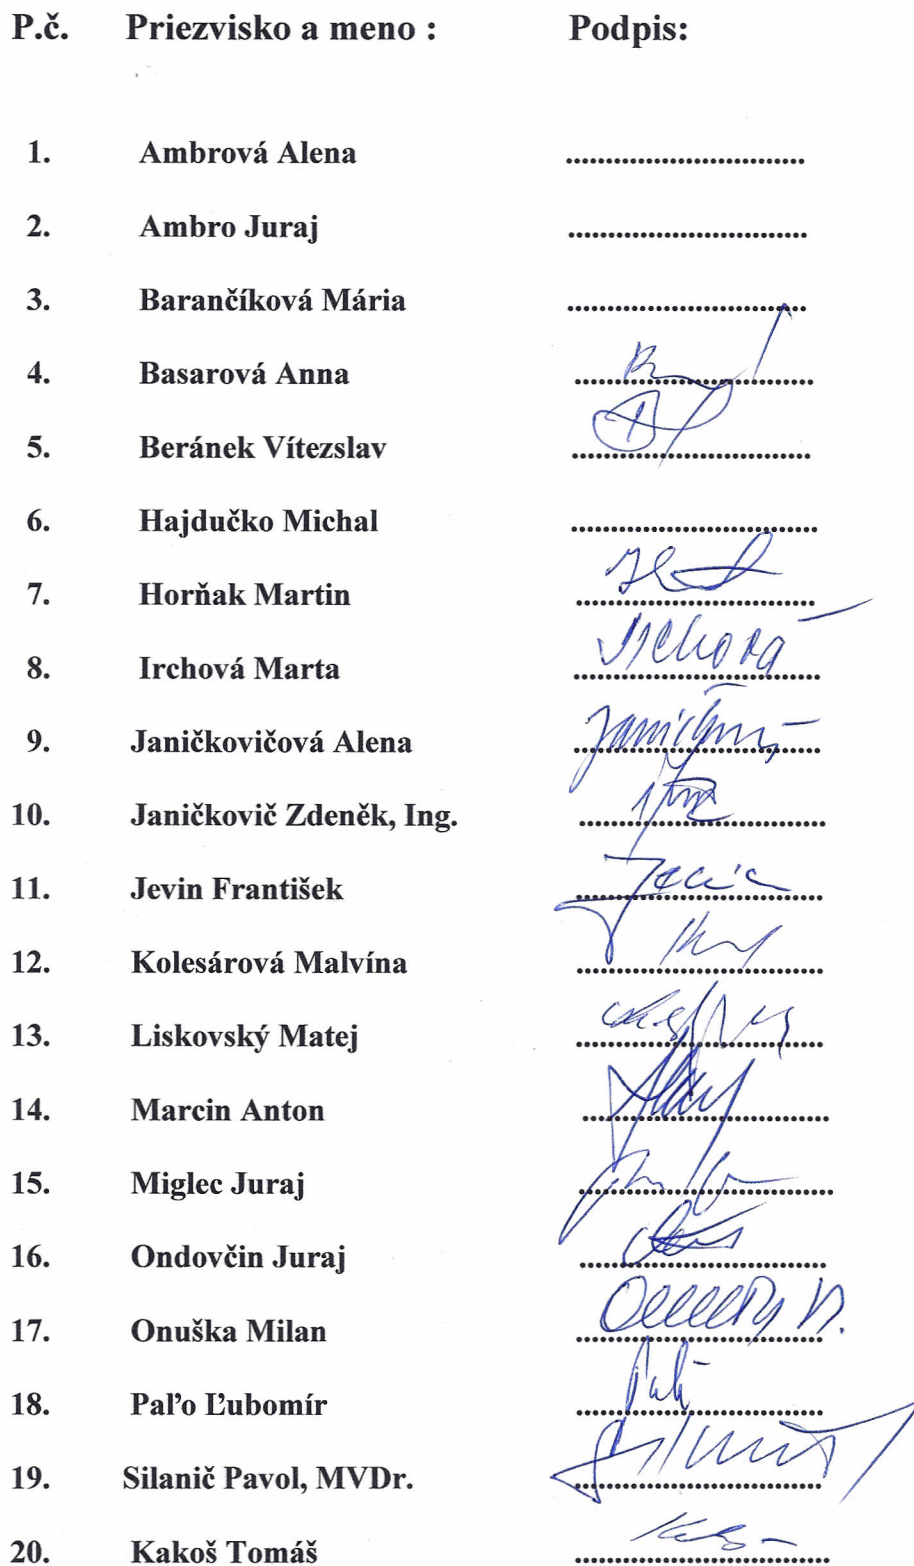 P.č. Priezvisko a meno : Podpis:
1. Ambrová Alena ..............................
2. Ambro Juraj ..............................
3. Barančíková Mária ..............................
4. Basarová Anna ..............................
5. Beránek Vítezslav ..............................
6. Hajdučko Michal ..............................
7. Horňak Martin ..............................
8. Irchová Marta Irchová ..............................
9. Janičkovičová Alena ..............................
10. Janičkovič Zdeněk, Ing. ..............................
11. Jevin František ..............................
12. Kolesárová Malvína ..............................
13. Liskovský Matej ..............................
14. Marcin Anton ..............................
15. Miglec Juraj ..............................
16. Ondovčin Juraj ..............................
17. Onuška Milan ..............................
18. Paľo Ľubomír ..............................
19. Silanič Pavol, MVDr. ..............................
20. Kakoš Tomáš ..............................